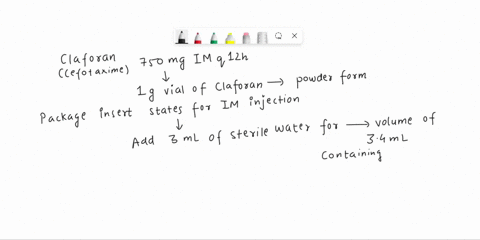 Claforan 750 mg IM q 12h
(Cefotaxime)
↓
1 g vial of Claforan → powder form
Package insert states for IM injection
↓
Add 3 mL of sterile water for → volume of
3.4 mL
Containing